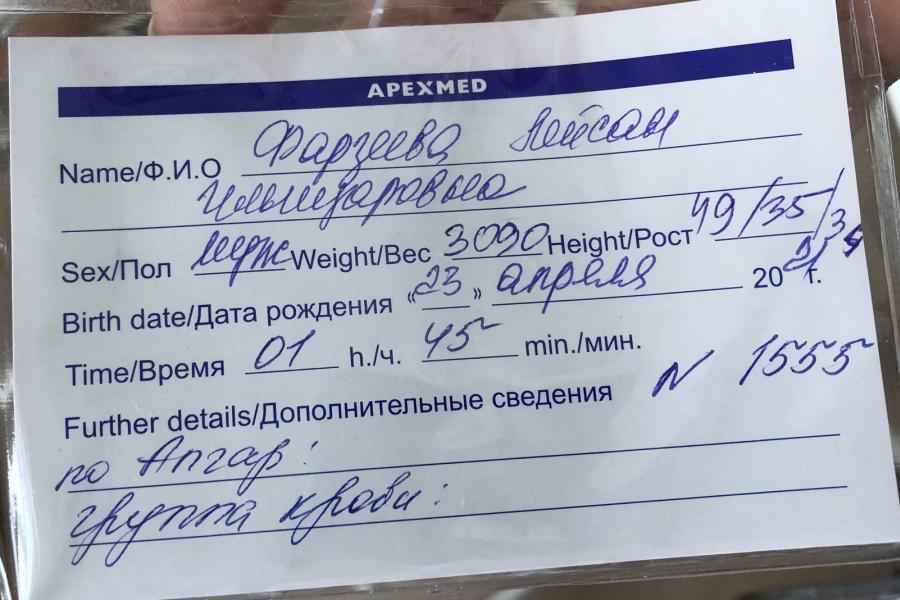 APEXMED
Name/Ф.И.О Фарзеева Лейсан
Ильшаровна
Sex/Пол муж Weight/Вес 3090 Height/Рост 49/35/34
Birth date/Дата рождения «23» апреля 2021 г.
Time/Время 01 h./ч. 45 min./мин.
Further details/Дополнительные сведения N 1555
по Апгар:
группа крови: